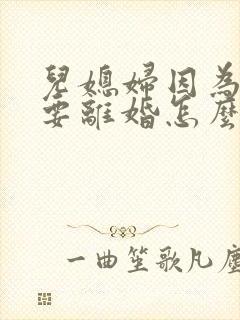 兒媳婦因為
要離婚怎麼
一曲笙歌凡塵